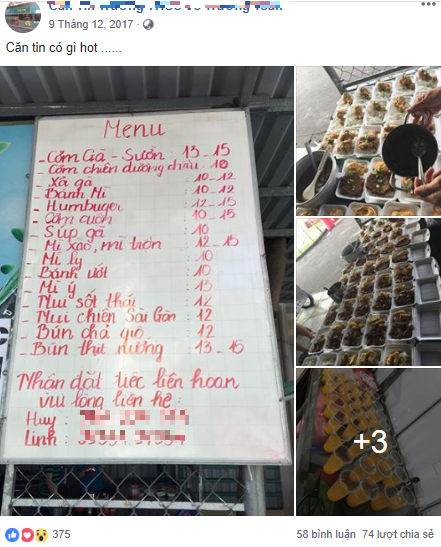 9 Tháng 12, 2017
Căn tin có gì hot ......
Menu
- Cơm Gà - Sườn : 13 - 15
- Cơm chiên dương châu : 10
- Xá gà : 10 - 12
- Bánh Mì : 10 - 12
- Humbuger : 12 - 15
- Cơm cuộn : 10 - 15
- Súp gà : 10
- Mì xào, mì trộn : 12 - 15
- Mì ly : 10
- Bánh ướt : 10
- Mì ý : 15
- Nui sốt thái : 12
- Nui chiên Sài Gòn : 12
- Bún chả giò : 12
- Bún thịt nướng : 13 - 15
Nhận đặt tiệc liên hoan
vui lòng liên hệ :
Huy :
Linh :
+3
375
58 bình luận 74 lượt chia sẻ